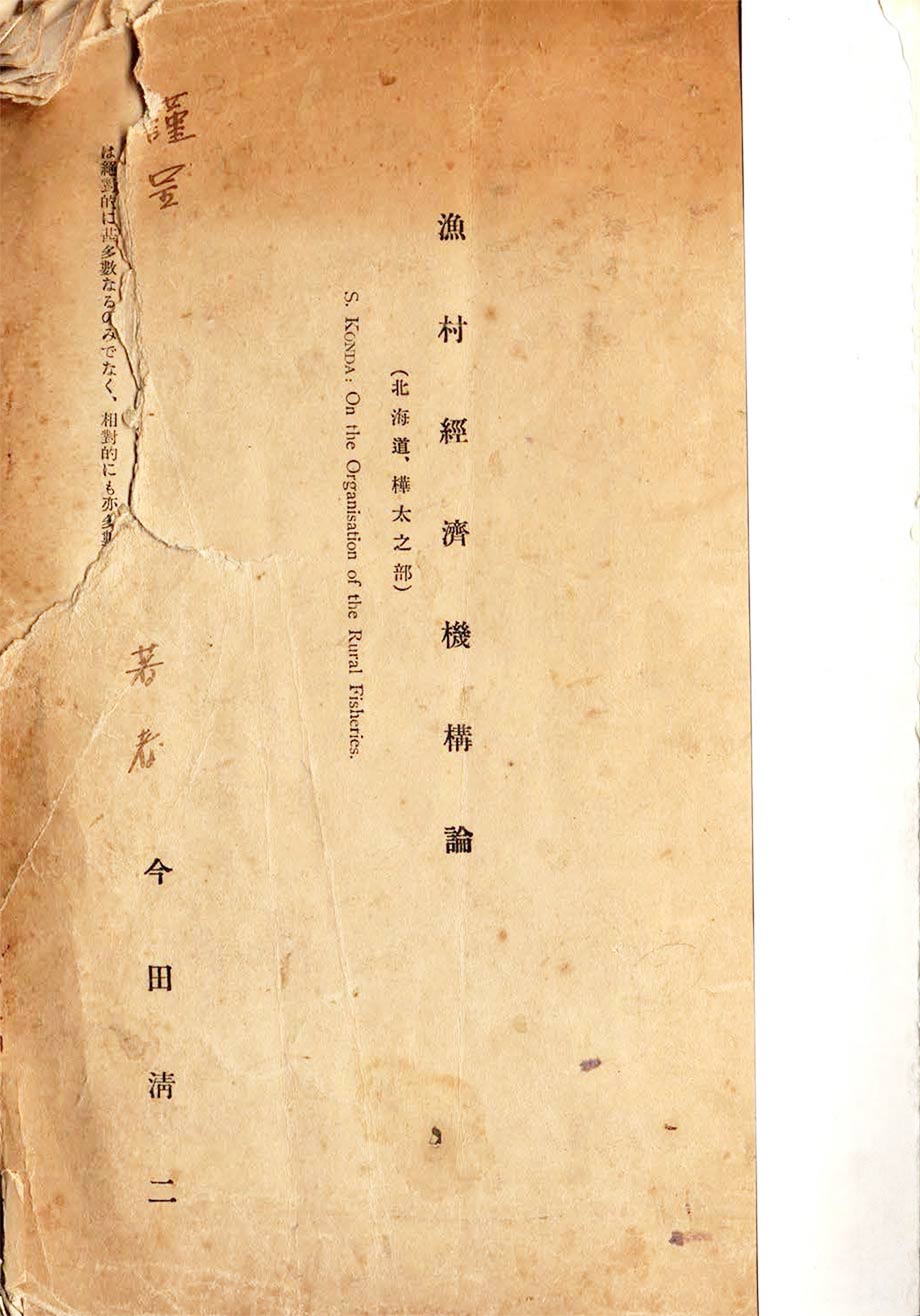 漁村經濟機構論
(北海道、樺太之部)
S. KONDA: On the Organisation of the Rural Fisheries.
謹呈
著者
今田淸二
は絕對的に甚多數なるのみでなく、相對的にも亦多數